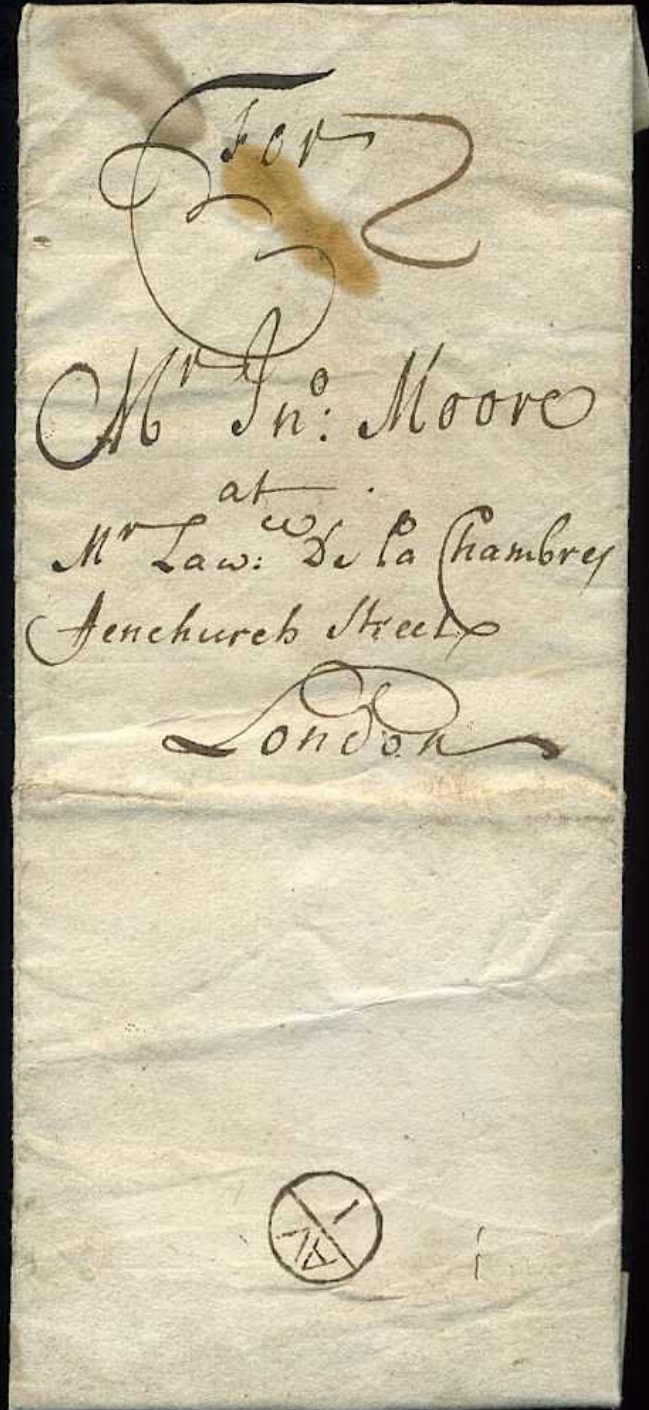 For 2
Mr Jno: Moore
at
Mr Lawce: De la Chambre
Fenchurch Street
London
1
AP